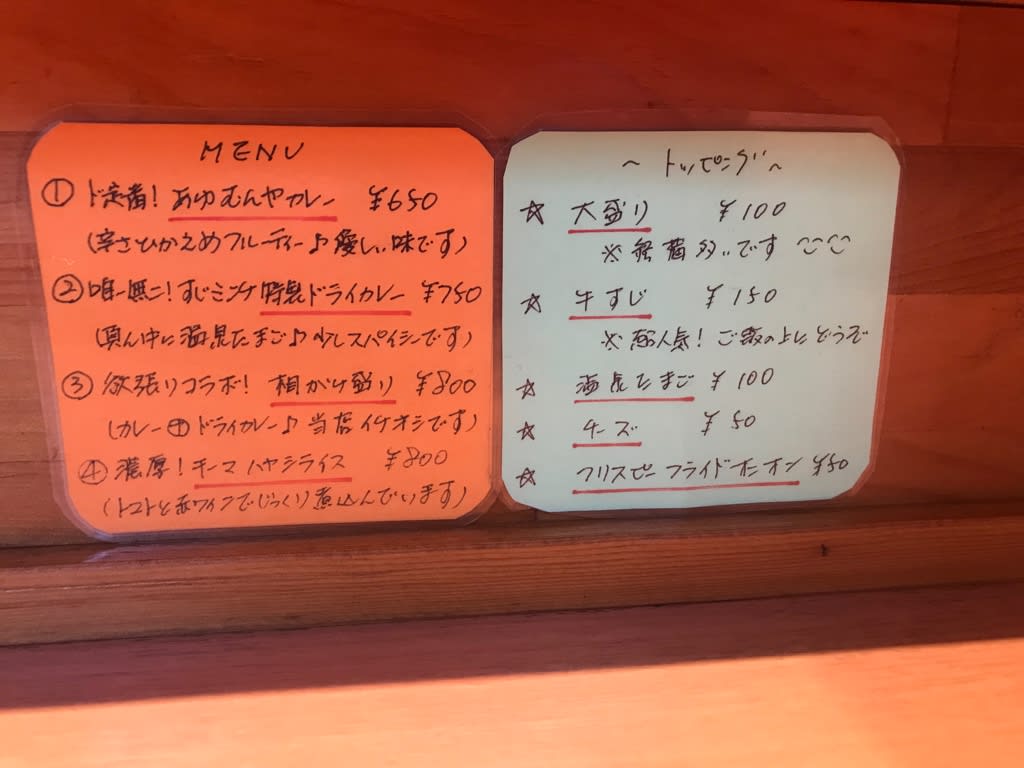 MENU
① ド定番！あゆむんやカレー ￥650
(辛さひかえめフルーティー♪優しい味です)
② 唯一無二！すじミンチ特製ドライカレー ￥750
(真ん中に温泉たまご♪少しスパイシーです)
③ 欲張りコラボ！相がけ盛り ￥800
(カレー⊕ドライカレー♪当店イチオシです)
④ 濃厚！キーマハヤシライス ￥800
(トマトと赤ワインでじっくり煮込んでいます)
～トッピング～
☆ 大盛り ￥100
※ 多いです
☆ 牛すじ ￥150
※ 超人気！ご飯の上にどうぞ
☆ 温泉たまご ￥100
☆ チーズ ￥50
☆ クリスピーフライドオニオン ￥50